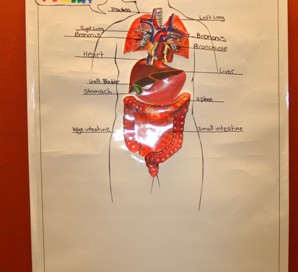 Trachea
Left lung
Right lung
Bronchus
Bronchus
Bronchiole
Heart
Liver
Gall Bladder
Stomach
spleen
large intestine
small intestine